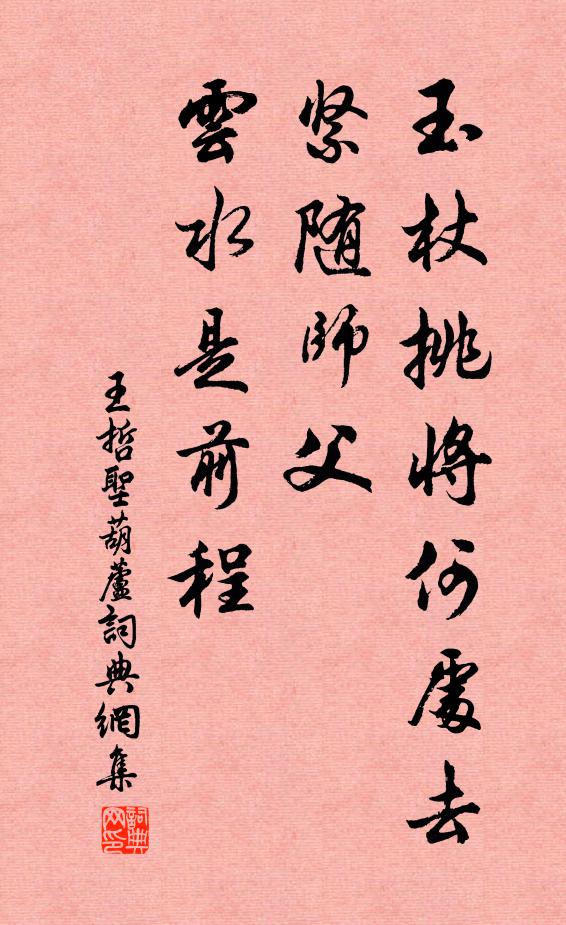 玉杖挑將何處去
紧随師父
雲水是前程
王哲聖葫蘆詞典網集
詞典网印